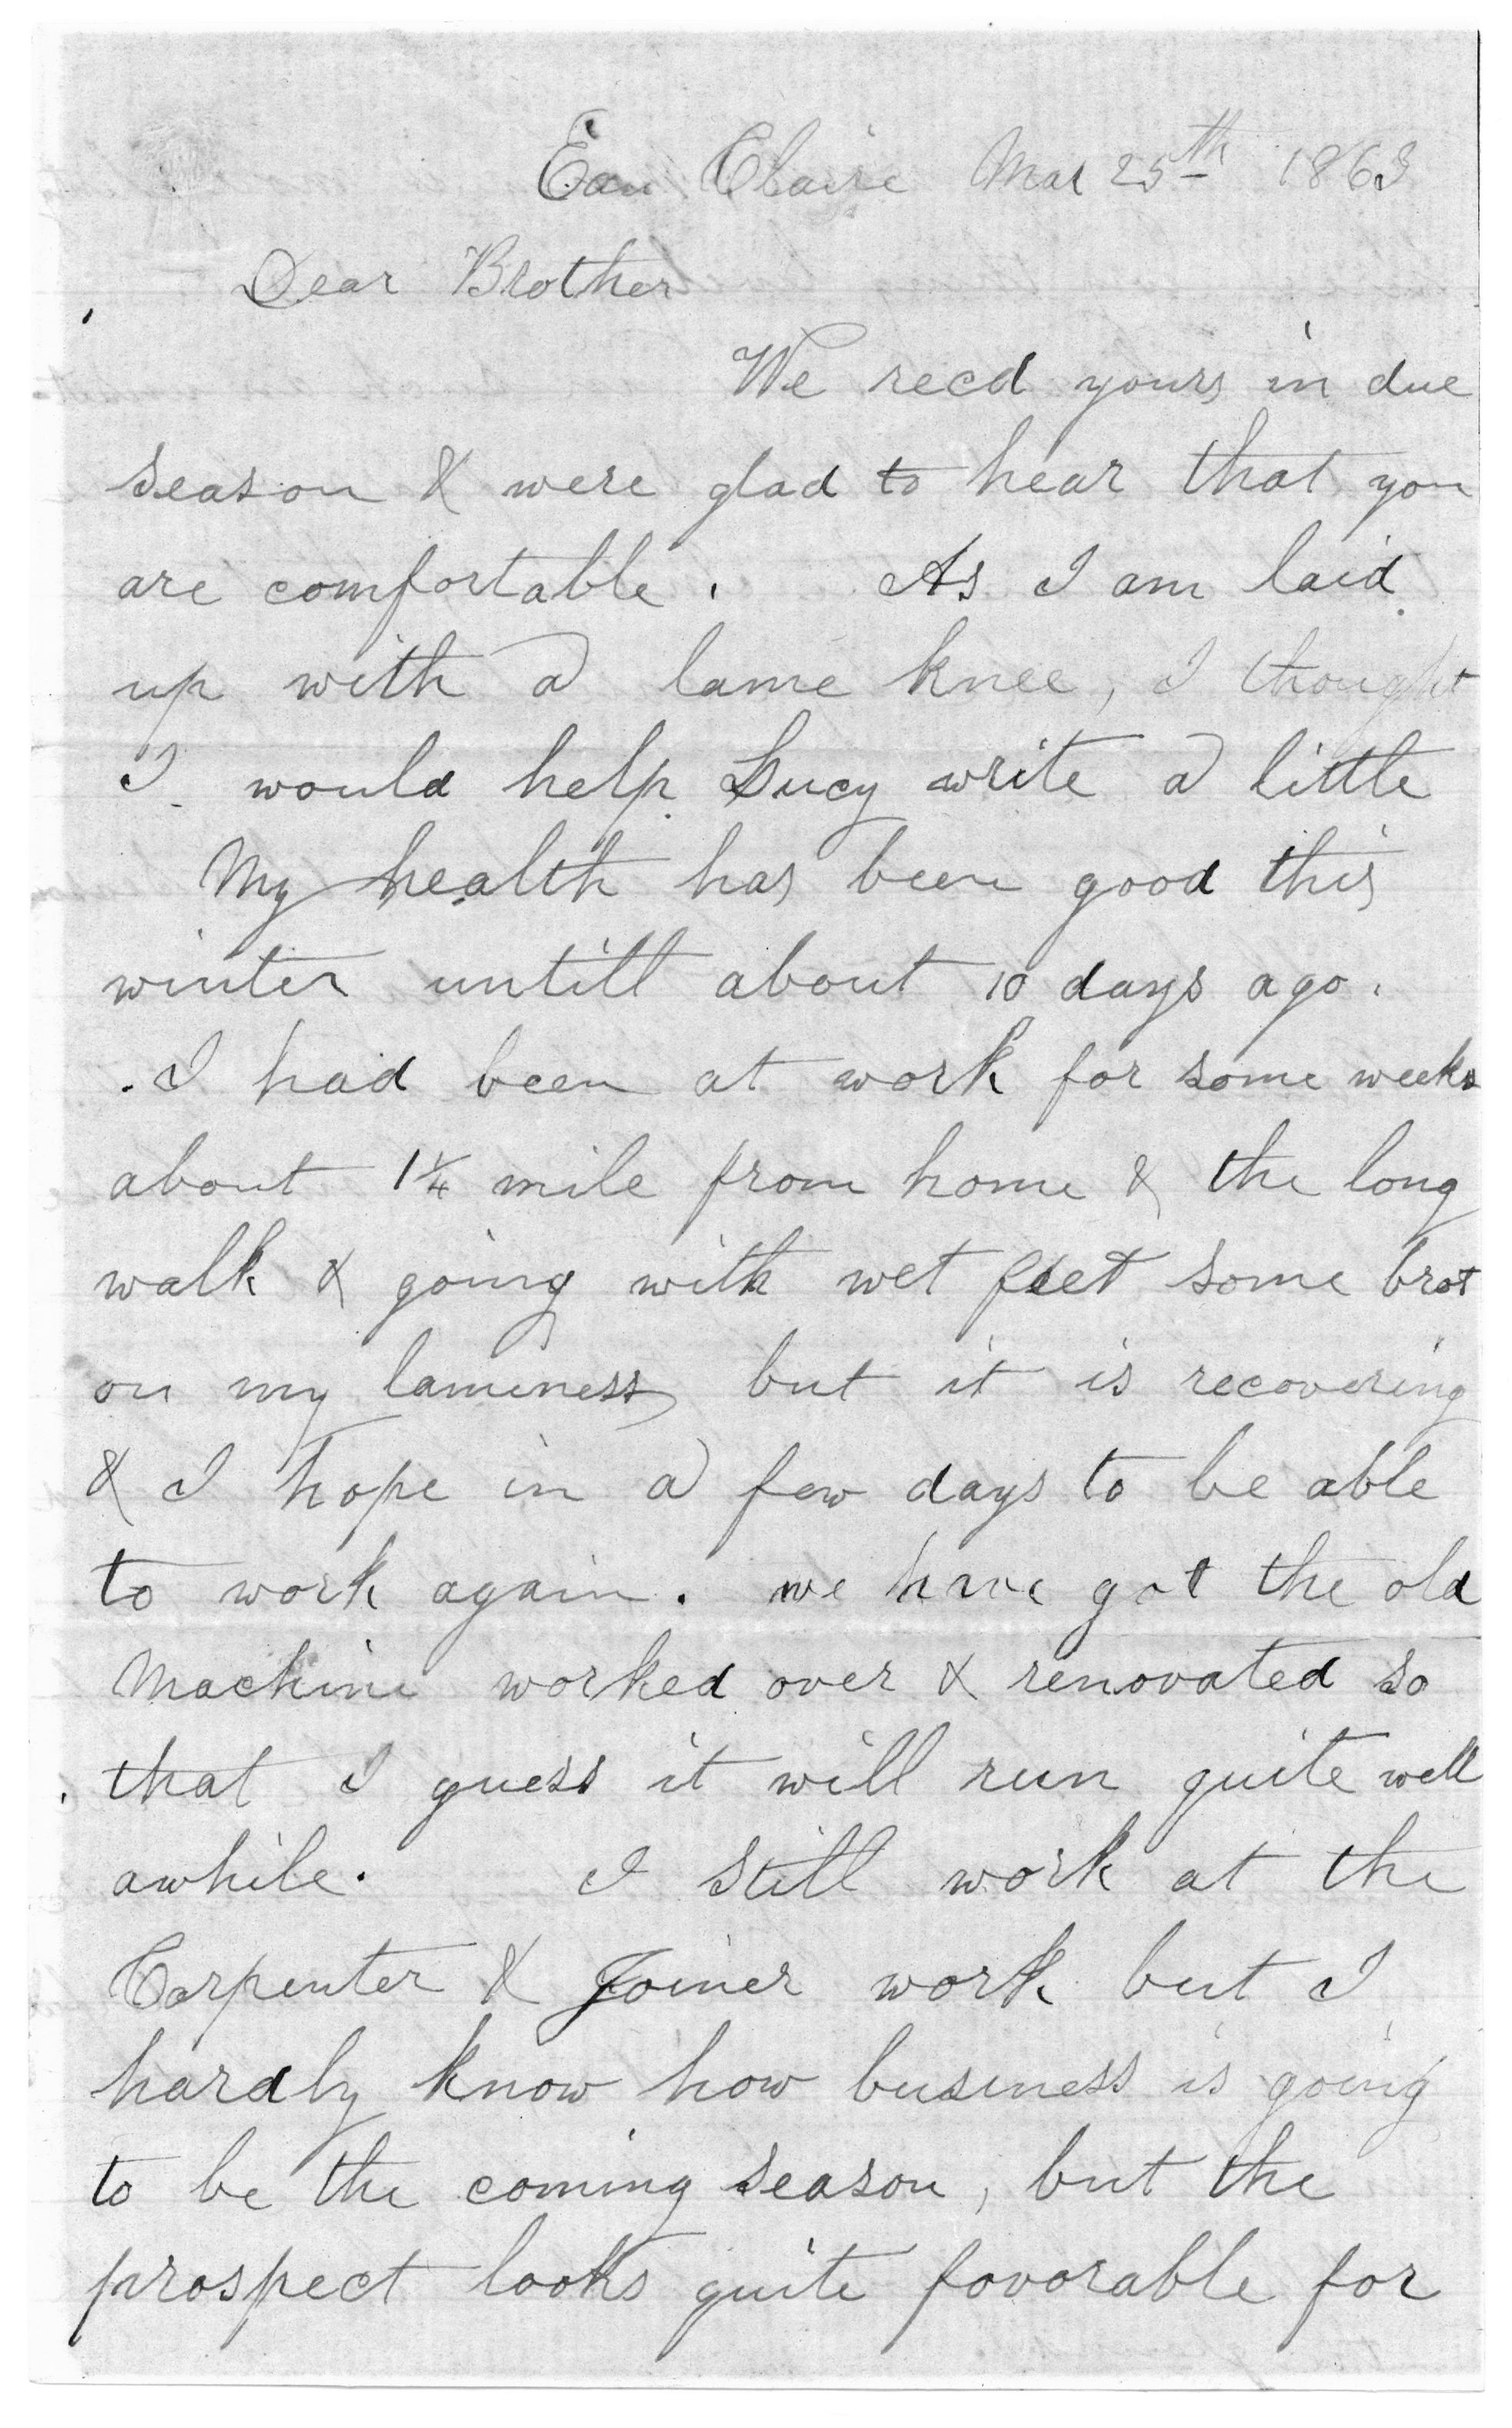 Eau Claire Mar 25th 1863
Dear Brother
We recd yours in due
season & were glad to hear that you
are comfortable. As I am laid
up with a lame knee, I thought
I would help Lucy write a little
My health has been good this
winter untill about 10 days ago.
I had been at work for some weeks
about 1¼ mile from home & the long
walk & going with wet feet some brot
on my lameness but it is recovering
& I hope in a few days to be able
to work again. we have got the old
Machine worked over & renovated so
that I guess it will run quite well
awhile. I still work at the
Carpenter & Joiner work but I
hardly know how business is going
to be the coming season, but the
prospect looks quite favorable for